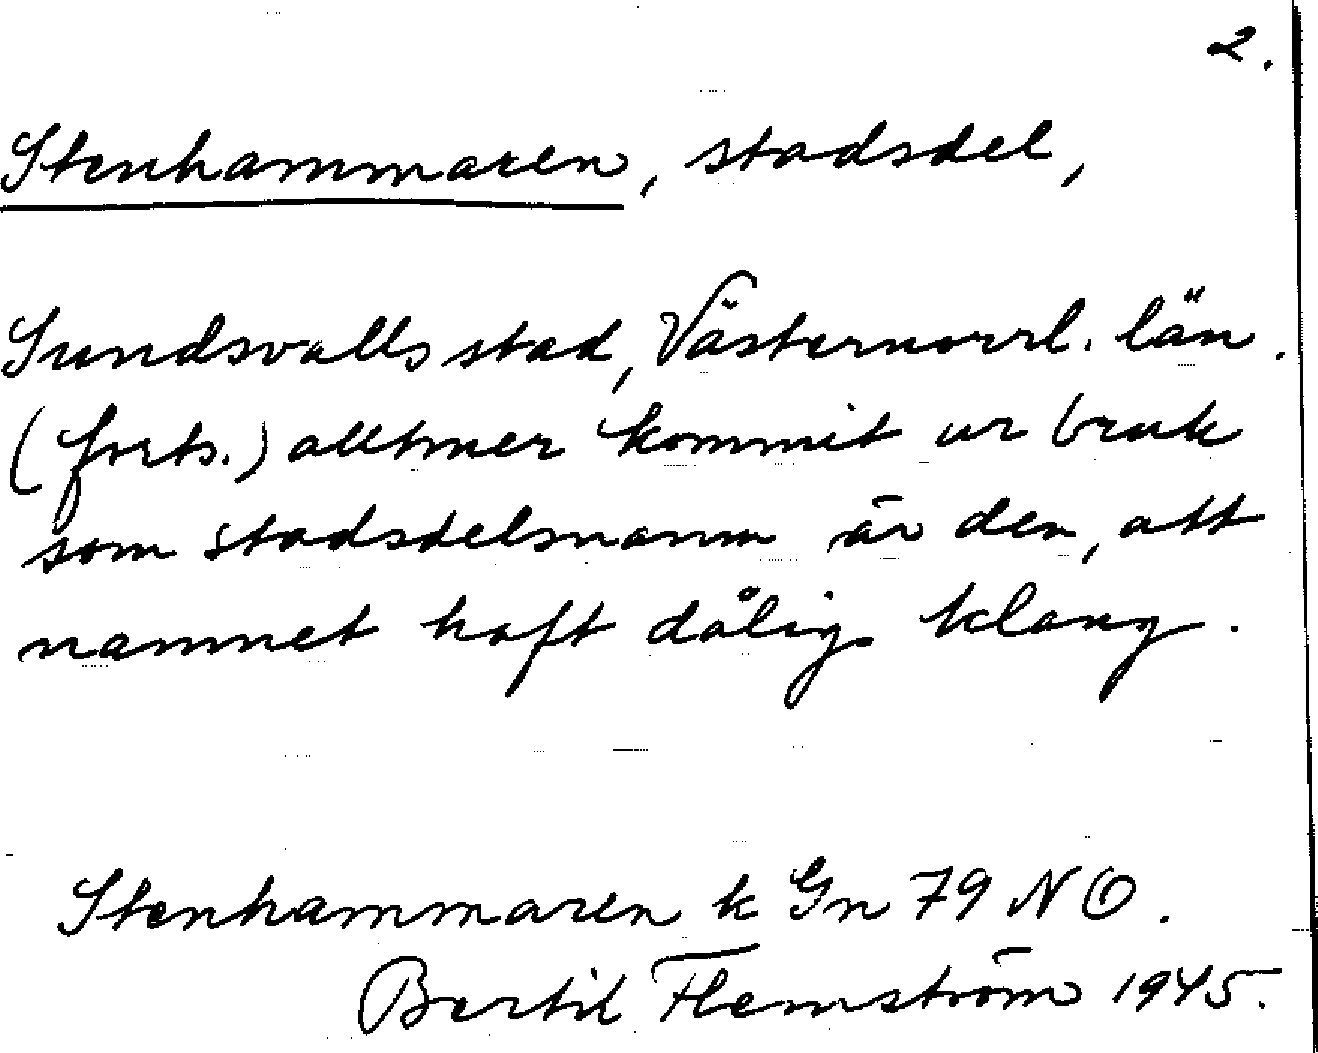 2.
Stenhammaren, stadsdel,
Sundsvalls stad, Västernorrl. län.
(forts.) alltmer kommit ur bruk
som stadsdelsnamn är den, att
namnet haft dålig klang.
Stenhammaren k Gn 79 NO.
Bertil Flemström 1945.